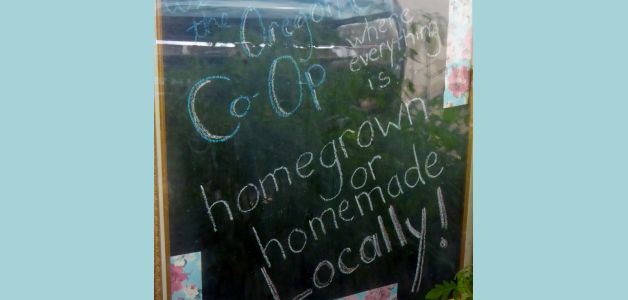 the Oregon
Co-Op
where
everything
is
homegrown
or
homemade
Locally!